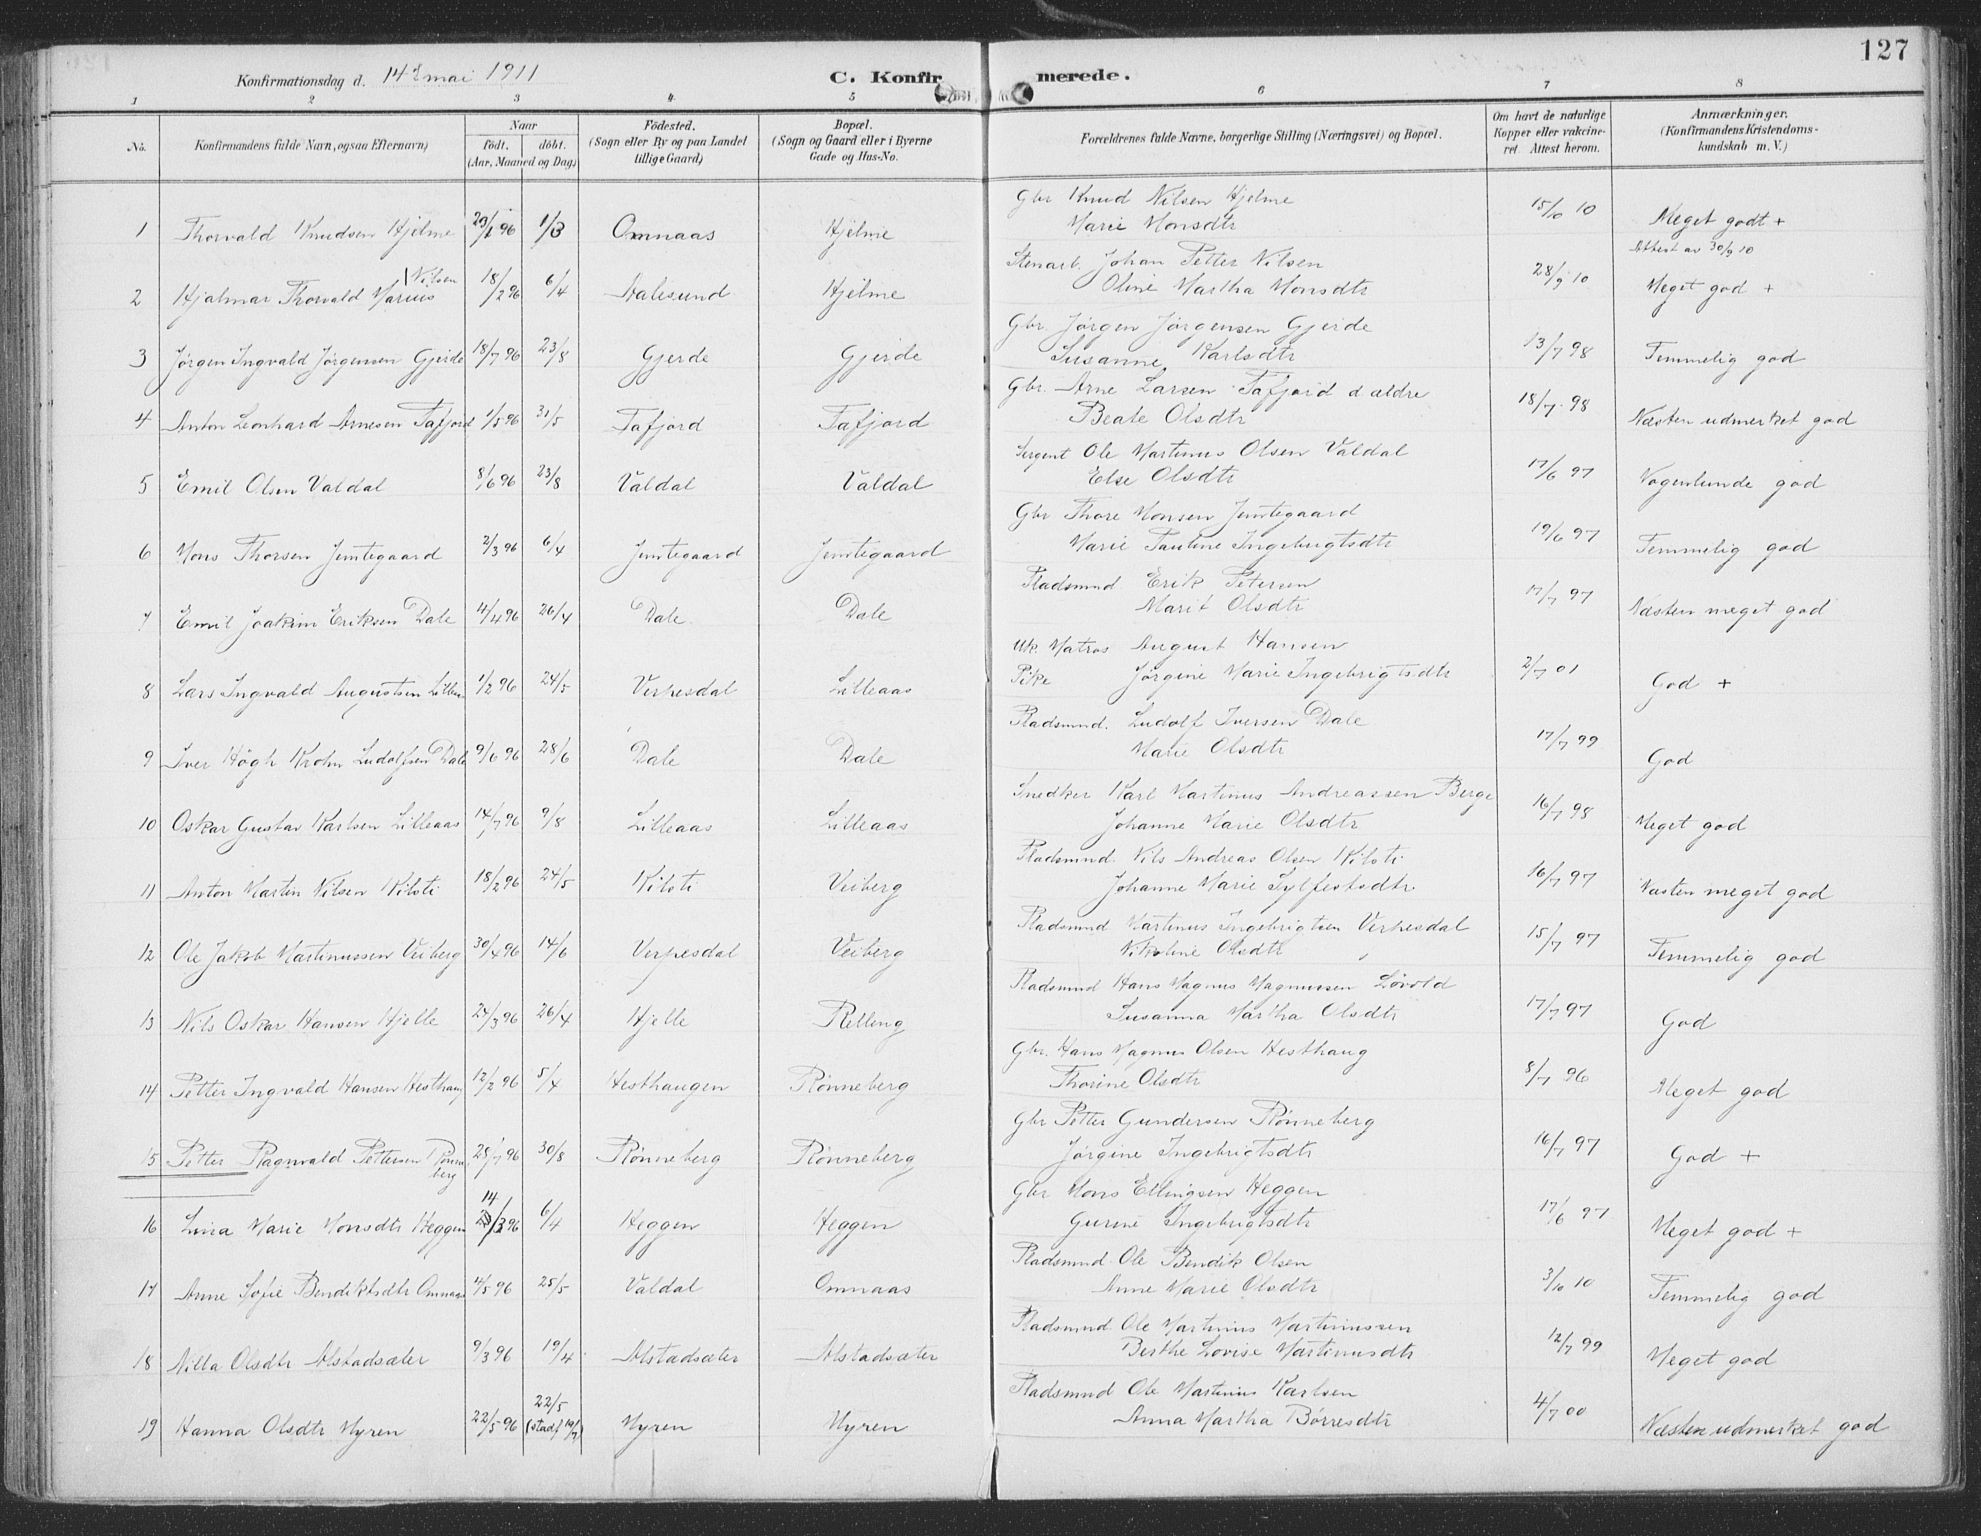 127
Konfirmationsdag d. 14de mai 1911
C. Konfirmerede.
1 2 3 4 5 6 7 8
No. Konfirmandens fulde Navn, ogsaa Efternavn) Naar født. døbt. (Aar, Maaned og Dag) Fødested. (Sogn eller By og paa Landet tillige Gaard) Bopæl. (Sogn og Gaard eller i Byerne Gade og Hus-No. Forældrenes fulde Navne, borgerlige Stilling (Næringsvei) og Bopæl. Om havt de naturlige Kopper eller vakcineret. Attest herom. Anmærkninger. (Konfirmandens Kristendomskundskab m. V.)
Gbr Knud Nilsen Hjelme
1 Thorvald Knudsen Hjelme 1/3 Omnaas Hjelme Marie Monsdtr 15/10 10 Meget godt +
Attest av 30/9 10
2 Hjalmar Thorvald Marius Nilsen 18/2 96 6/4 Aalesund Hjelme Stenarb. Johan Petter Nilsen
Oline Martha Monsdtr 28/9 10 Meget god +
3 Jørgen Ingvald Jørgensen Gjerde 18/7 96 23/8 Gjerde Gjerde Gbr. Jørgen Jørgensen Gjerde
Susanne Karlsdtr 13/7 98 Temmelig god
4 Anton Leonhard Arnesen Tafjord 1/5 96 31/5 Tafjord Tafjord Gbr. Arne Larsen Tafjord d ældre
Beate Olsdtr 18/7 98 Næsten udmerket god
5 Emil Olsen Valdal 8/6 96 23/8 Valdal Valdal Sergent Ole Martinus Olsen Valdal
Else Olsdtr 17/6 97 Nogenlunde god
6 Mons Thorsen Jemtegaard 2/3 96 6/4 Jemtegaard Jemtegaard Gbr Thore Monsen Jemtegaard
Marie Pauline Ingebrigtsdtr 19/6 97 Temmelig god
7 Emil Joakim Eriksen Dale 4/4 96 26/4 Dale Dale Pladsmnd Erik Petersen
Marit Olsdtr 17/7 97 Næsten meget god
8 Lars Ingvald Augustsen 1/2 96 24/5 Verpesdal Lilleaas Uk. Matros August Hansen
Pike Jørgine Marie Ingebrigtsdtr 2/7 01 God +
9 Iver Høgh Krohn Ludolfsen Dale 9/6 96 28/6 Dale Dale Pladsmnd. Ludolf Iversen Dale
Marie Olsdtr 17/7 99 God
10 Oskar Gustav Karlsen Lilleaas 14/7 96 9/8 Lilleaas Lilleaas Snedker Karl Martinus Andreassen Berge
Johanne Marie Olsdtr 16/7 98 Meget god
11 Anton Martin Nilsen Kilsti 18/2 96 24/5 Kilsti Veiberg Pladsmnd. Nils Andreas Olsen Kilsti
Johanne Marie Sylfestsdtr. 16/7 97 Næsten meget god
12 Ole Jakob Martinussen Veiberg 30/4 96 14/6 Verpesdal Veiberg Pladsmnd Martinus Ingebrigtsen Verpesdal
Nikoline Olsdtr 15/7 97 Temmelig god
13 Nils Oskar Hansen Hjelle 24/3 96 26/4 Hjelle Relling Pladsmnd Hans Magnus Magnussen Løvold
Susanna Martha Olsdtr 17/7 97 God
14 Petter Ingvald Hansen Hesthaug 12/2 96 5/4 Hesthaugen Rønneberg Gbr. Hans Magnus Olsen Hesthaug
Thorine Olsdtr 8/7 96 Meget god
15 Petter Ragnvald Pettersen Rønneberg 28/7 96 30/8 Rønneberg Rønneberg Gbr Petter Gundersen Rønneberg
Jørgine Ingebrigtsdtr 16/7 97 God +
16 Lina Marie Monsdtr Heggen 14/3 96 6/4 Heggen Heggen Gbr Mons Ellingsen Heggen
Gurine Ingebrigtsdtr 17/6 97 Meget god +
17 Anne Sofie Bendiktsdtr Omnaas 4/5 96 25/5 Valdal Omnaas Pladsmnd Ole Bendik Olsen
Anne Marie Olsdtr 3/10 10 Temmelig god
18 Nilla Olsdtr Alstadsæter 9/3 96 19/4 Alstadsæter Alstadsæter Pladsmnd. Ole Martinus Martinussen
Berthe Lovise Martinusdtr 12/7 99 Meget god
19 Hanna Olsdtr Myren 22/5 96 22/5 (stadf 19/7) Myren Myren Pladsmnd Ole Martinus Karlsen
Anna Martha Børresdtr 4/7 00 Næsten udmerket god